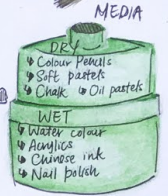 MEDIA
DRY
↳ Colour Pencils
↳ Soft pastels
↳ Chalk ↳ Oil pastels
WET
↳ Water colour
↳ Acrylics
↳ Chinese ink
↳ Nail polish